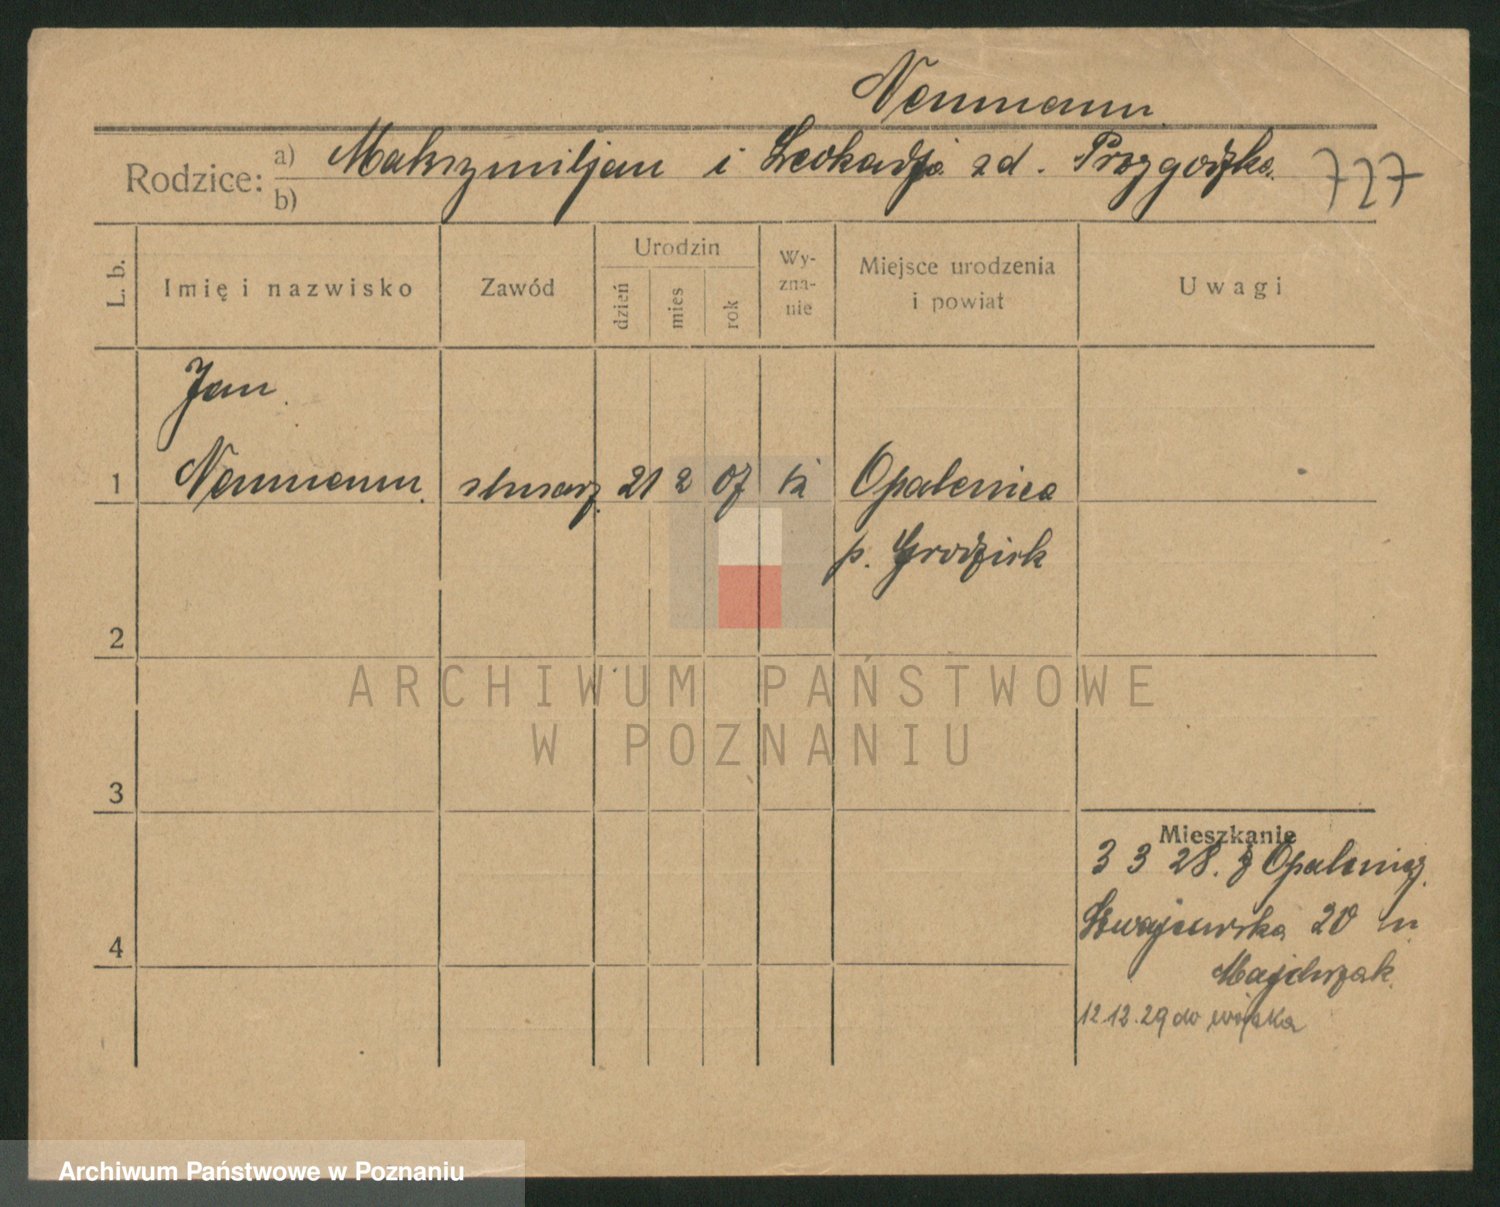 Neumann
Rodzice: a) Maksymiljan i Leokadja zd. Przygodzka 727
b)
L. b. Imię i nazwisko Zawód Urodzin dzień mies rok Wy-zna-nie Miejsce urodzenia i powiat Uwagi
Jan
1 Neumann. ślusarz. 21 2 07 k Opalenica
p. Grodzisk
2
ARCHIWUM PAŃSTWOWE
W POZNANIU
3
Mieszkanie
3 3 28. z Opalenicy.
20 m
4
Majchrzak
12.12.29 do wojska
Archiwum Państwowe w Poznaniu